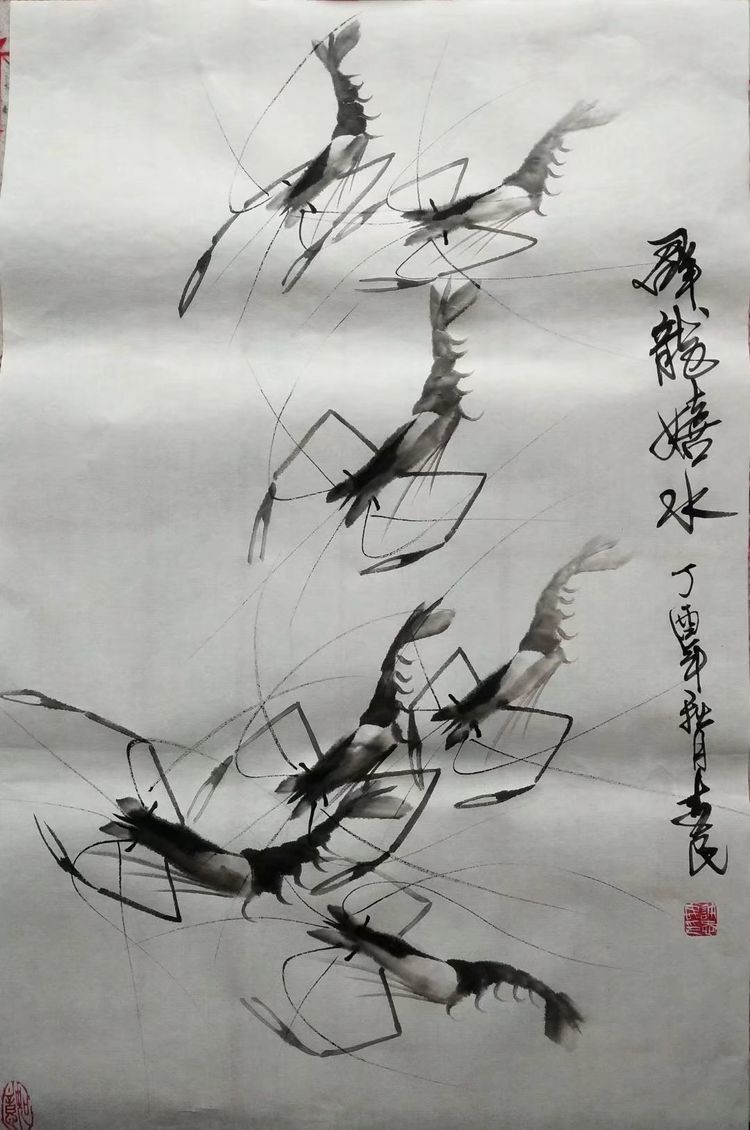 群龙嬉水
丁酉年秋月志民